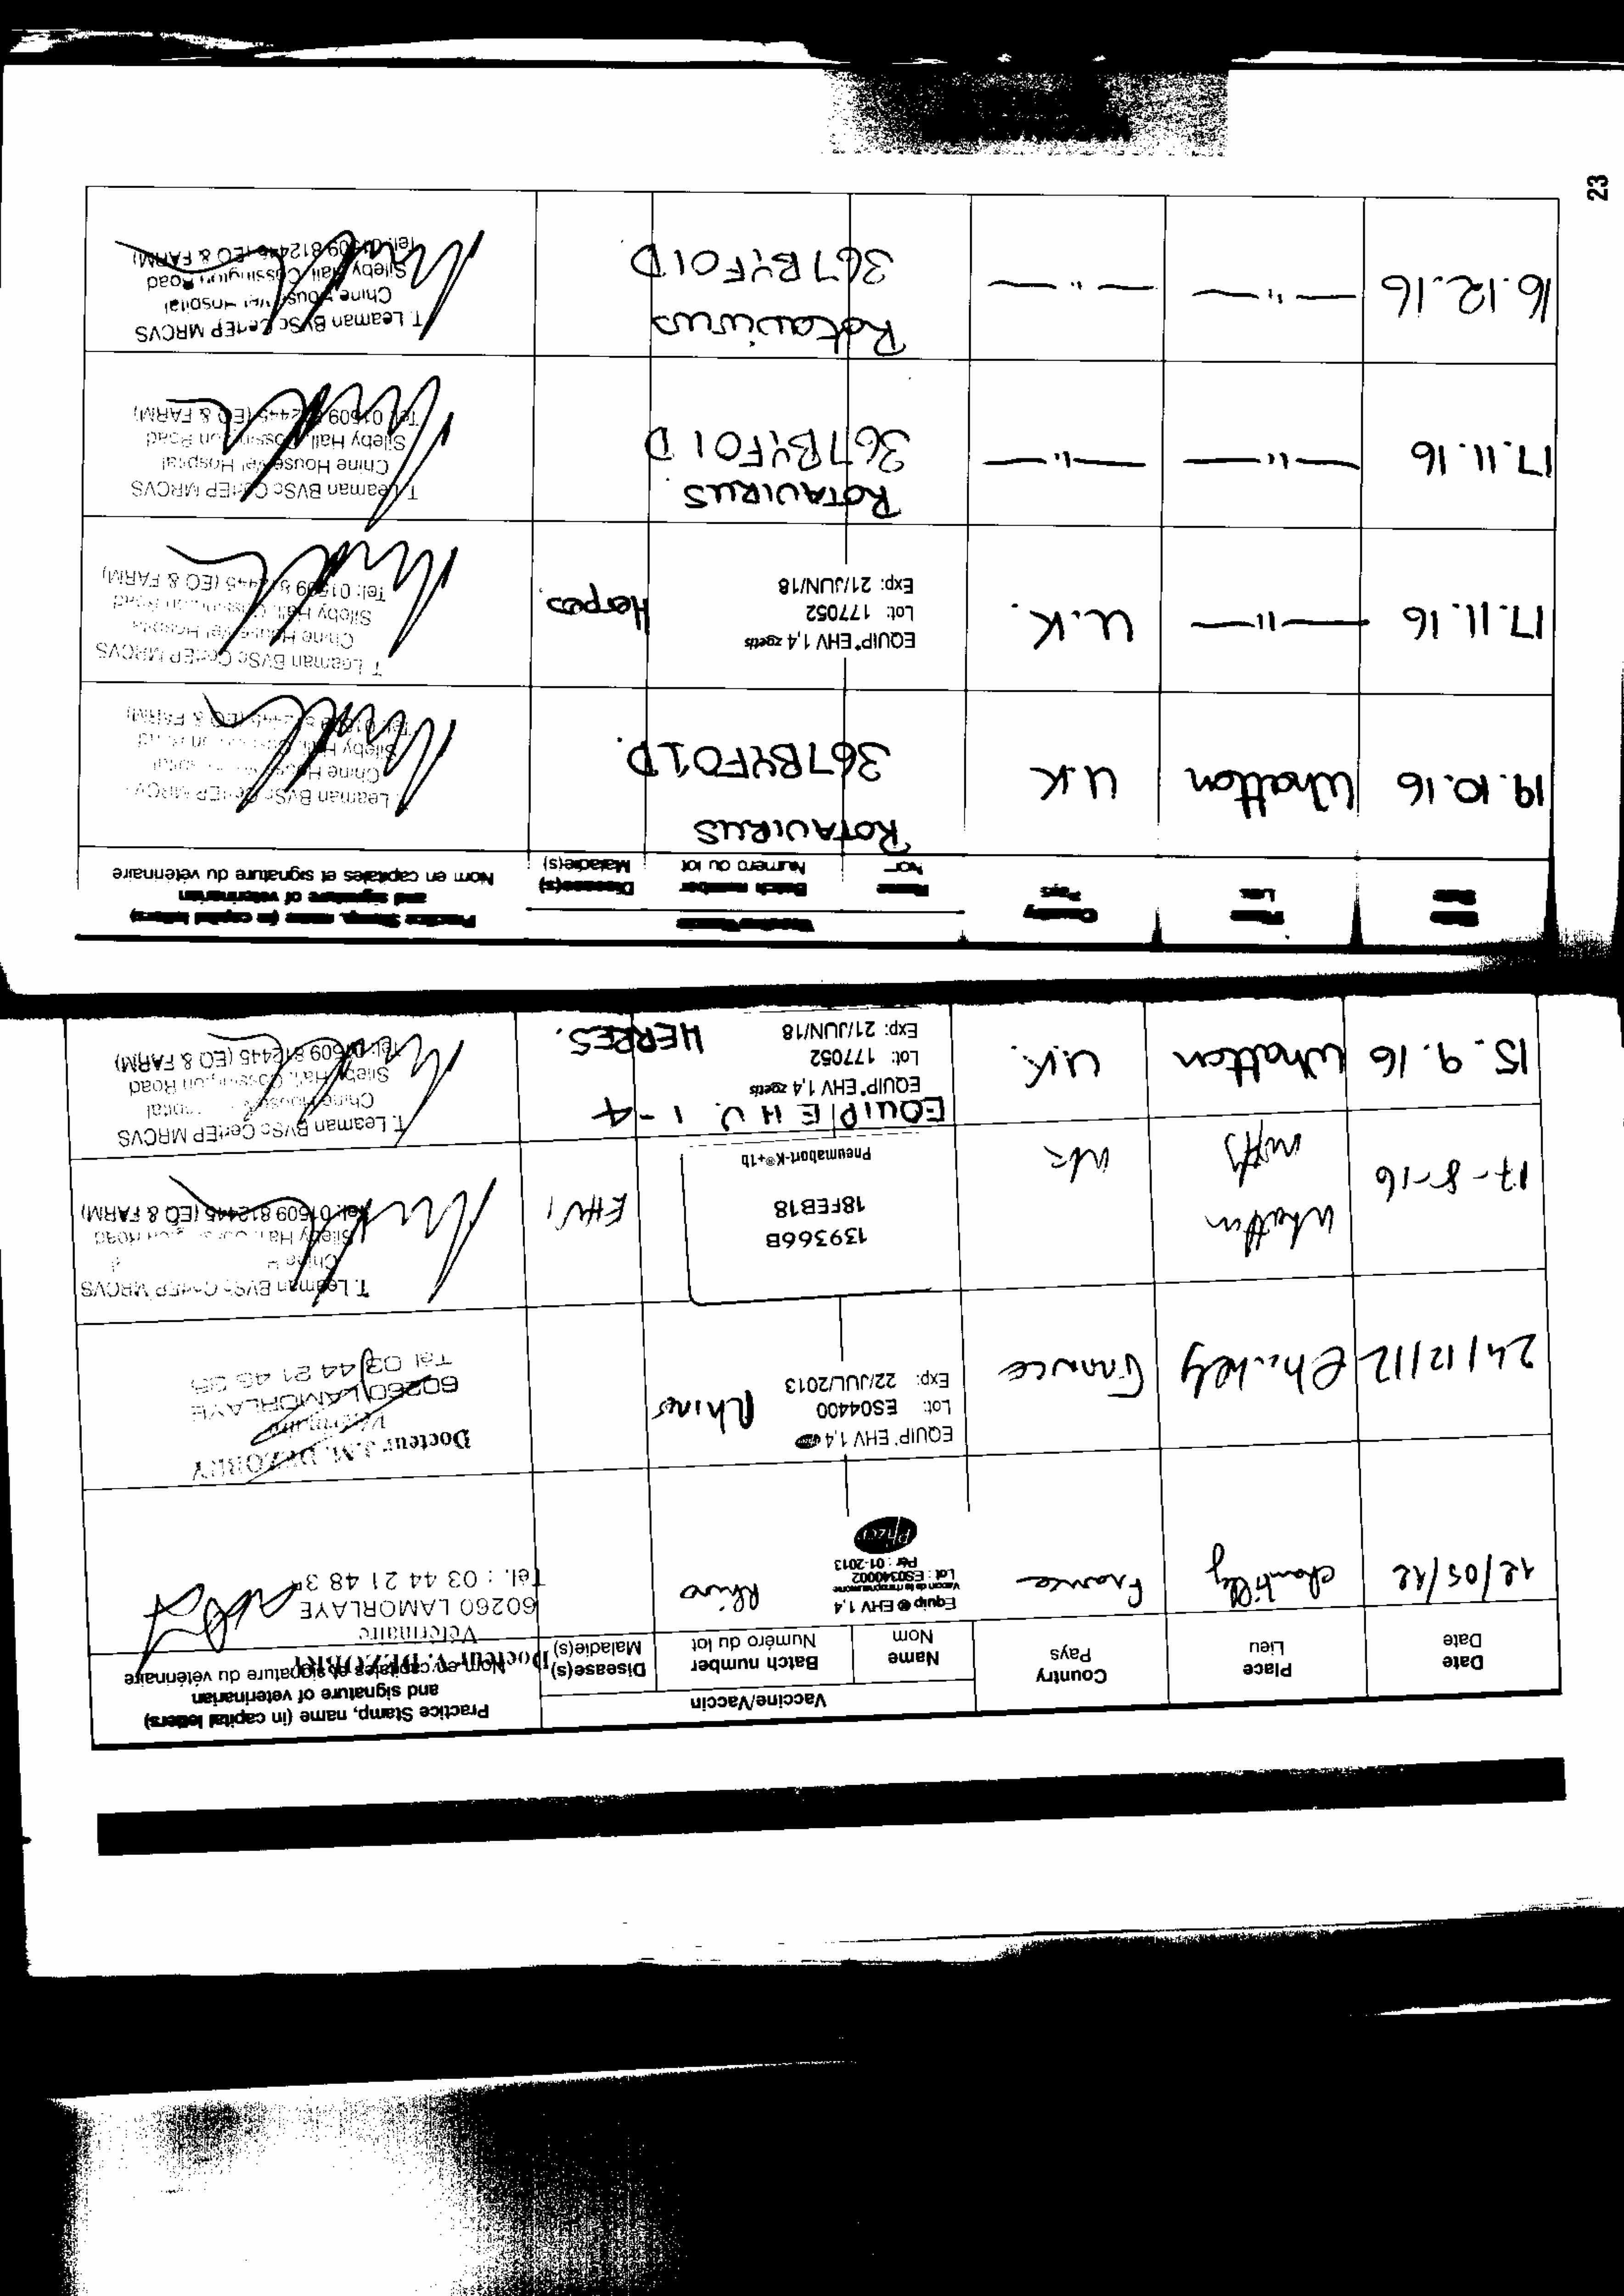 Date
Date
Place
Lieu
Country
Pays
Vaccine/Vaccin
Name
Nom
Batch number
Numéro du lot
Disease(s)
Maladie(s)
Practice Stamp, name (in capital letters)
and signature of veterinarian
Nom en capitales et signature du vétérinaire
12/05/12
Chantilly
France
Equip EHV 1,4
Lot : ES0340002
Pér : 01-2013
Pfizer
Rhino
Docteur V. DEZOBRY
Vétérinaire
60260 LAMORLAYE
Tél. : 03 44 21 48 3
24/12/12
France
EQUIP EHV 1,4
Lot: ES04400
Exp: 22/JUL/2013
Rhino
Docteur J.M. DEZOBRY
Vétérinaire
60260 LAMORLAYE
Tél 03 44 21 46
17-8-16
Whatton
UK
139366B
18FEB18
Pneumabort-K®+1b
EHV1
T. Leaman BVSc CertEP MRCVS
Chine
Sileby Hall Cossington Road
Tel: 01509 812445 (EQ & FARM)
15.9.16
Whatton
U.K.
EQUIP E H V. 1-4
EQUIP® EHV 1,4 zoetis
Lot: 177052
Exp: 21/JUN/18
HERPES.
T. Leaman BVSc CertEP MRCVS
Chine House Hospital
Sileby Hall, Cossington Road
Tel: 01509 812445 (EQ & FARM)
Date
Date
Place
Lieu
Country
Pays
Vaccine/Vaccin
Name
Nom
Batch number
Numéro du lot
Disease(s)
Maladie(s)
Practice Stamp, name (in capital letters)
and signature of veterinarian
Nom en capitales et signature du vétérinaire
19.10.16
Whatton
U.K
ROTAVIRUS
367BYF01D.
Leaman BVSc CertEP MRCVS
Chine House Hospital
Sileby Hall, Cossington Road
Tel: 01509 812445 (EQ & FARM)
17.11.16
— " —
U.K.
EQUIP® EHV 1,4 zoetis
Lot: 177052
Exp: 21/JUN/18
Herpes.
T. Leaman BVSc CertEP MRCVS
Chine House Vet Hospital
Sileby Hall, Cossington Road
Tel: 01509 812445 (EQ & FARM)
17.11.16
— " —
— " —
ROTAVIRUS
367BYF01D
T. Leaman BVSc CertEP MRCVS
Chine House Vet Hospital
Sileby Hall, Cossington Road
Tel: 01509 812445 (EQ & FARM)
16.12.16
— " —
— " —
Rotavirus
367BYF01D
T. Leaman BVSc CertEP MRCVS
Chine House Vet Hospital
Sileby Hall, Cossington Road
Tel: 01509 812445 (EQ & FARM)
23